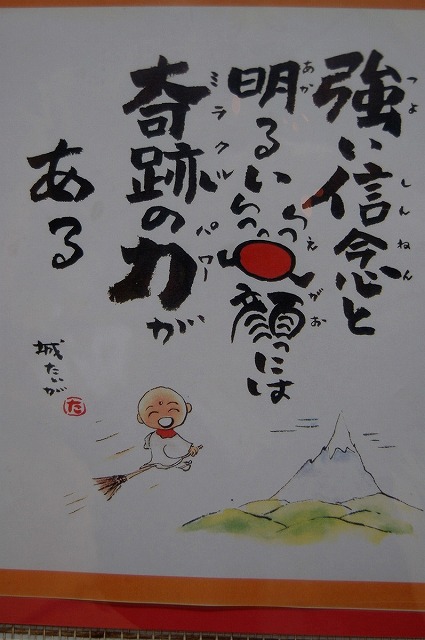 つよ しんねん
強い信念と
あか えがお
明るい笑顔には
ミラクル パワー
奇跡の力が
ある
城たいが
た